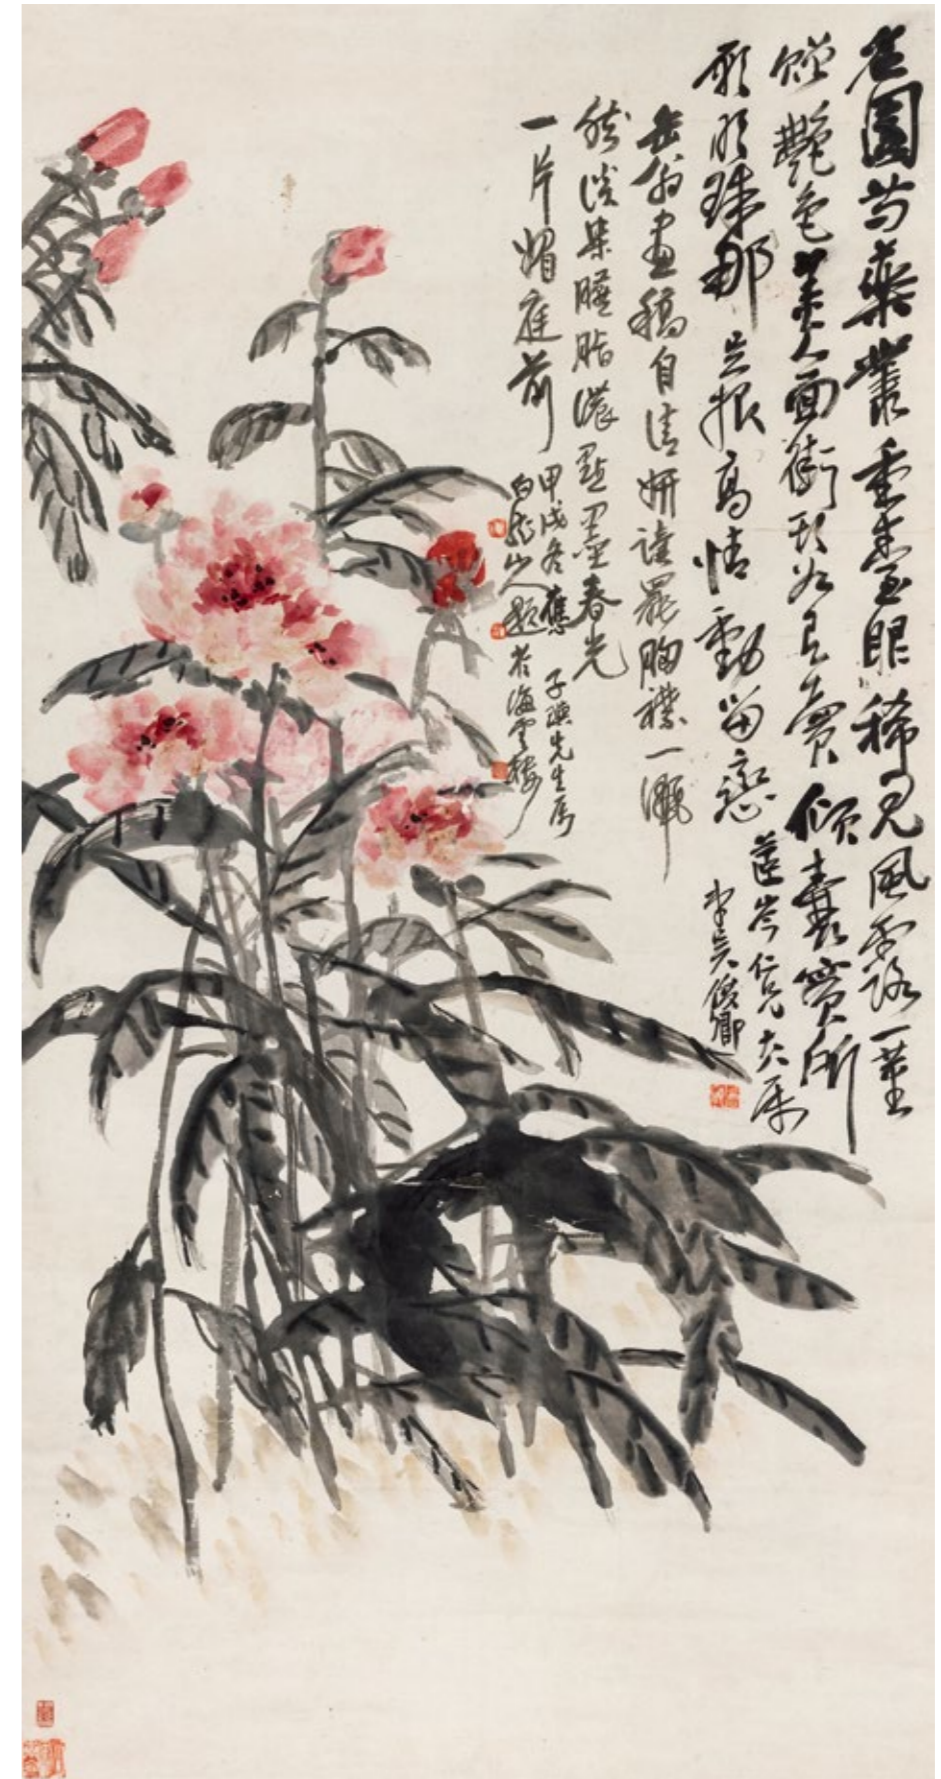 名園芍藥叢重臺眼稀見風露一
艷色美人面街頭如可賣傾囊買所
願明珠那足報高情動留戀
仁兄大屬
吳俊卿
缶翁畫稿自清妍讀罷胸襟一灑
然淡染臙脂濃點墨春光
一片媚庭前
甲戌冬應 子璜先生屬
白龍山人題於海雲樓